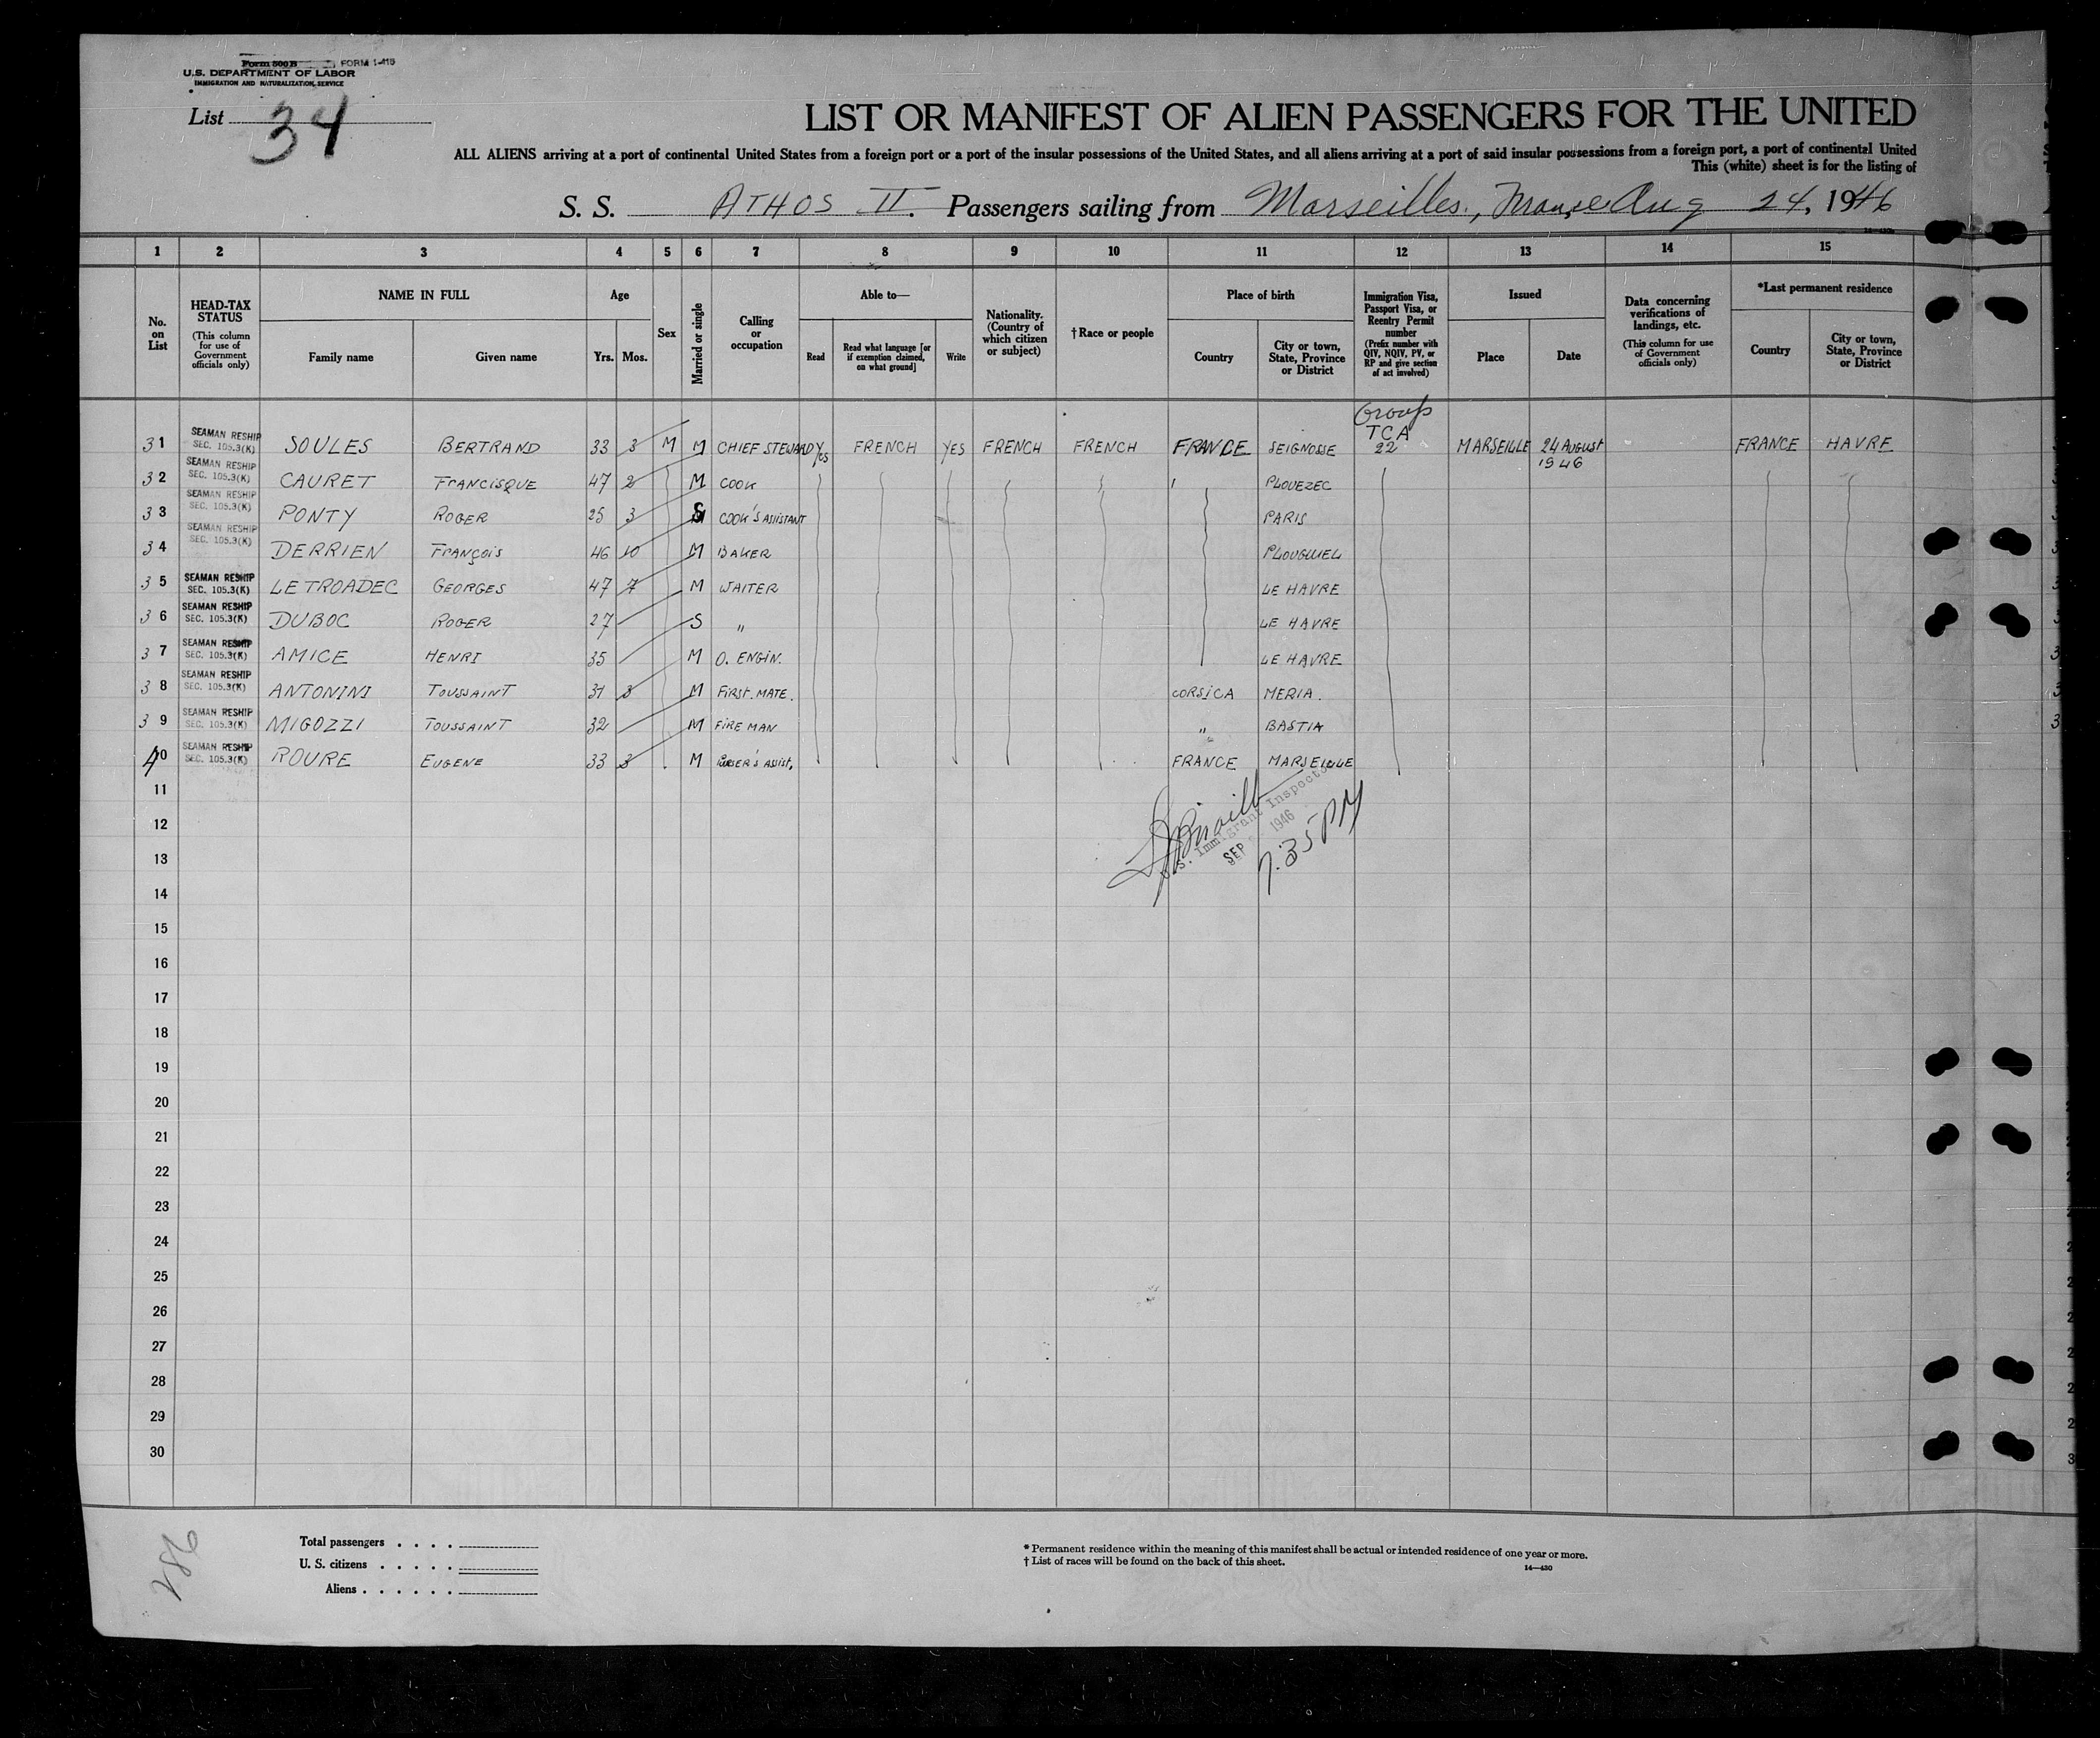 Form 500 B FORM I-415
U.S. DEPARTMENT OF LABOR
IMMIGRATION AND NATURALIZATION SERVICE
List 34
LIST OR MANIFEST OF ALIEN PASSENGERS FOR THE UNITED
ALL ALIENS arriving at a port of continental United States from a foreign port or a port of the insular possessions of the United States, and all aliens arriving at a port of said insular possessions from a foreign port, a port of continental United
This (white) sheet is for the listing of
S. S. ATHOS II. Passengers sailing from Marseilles, France Aug 24, 1946
1 2 3 4 5 6 7 8 9 10 11 12 13 14 15
No. on List
HEAD-TAX STATUS (This column for use of Government officials only)
NAME IN FULL Family name Given name
Age Yrs. Mos.
Sex
Married or single
Calling or occupation
Able to— Read Read what language [or if exemption claimed, on what ground] Write
Nationality. (Country of which citizen or subject)
†Race or people
Place of birth Country City or town, State, Province or District
Immigration Visa, Passport Visa, or Reentry Permit number (Prefix number with QIV, NQIV, PV, or RP and give section of act involved)
Issued Place Date
Data concerning verifications of landings, etc. (This column for use of Government officials only)
*Last permanent residence Country City or town, State, Province or District
Group
TCA
31 SEAMAN RESHIP SEC. 105.3(K) SOULES BERTRAND 33 3 M M CHIEF STEWARD Yes FRENCH YES FRENCH FRENCH FRANCE SEIGNOSSE 22 MARSEILLE 24 AUGUST 1946 FRANCE HAVRE
32 SEAMAN RESHIP SEC. 105.3(K) CAURET FRANCISQUE 47 2 M COOK PLOUEZEC
33 SEAMAN RESHIP SEC. 105.3(K) PONTY ROGER 25 3 S COOK'S ASSISTANT PARIS
34 SEAMAN RESHIP SEC. 105.3(K) DERRIEN FRANÇOIS 46 10 M BAKER PLOUGUIEL
35 SEAMAN RESHIP SEC. 105.3(K) LE TROADEC GEORGES 47 7 M WAITER LE HAVRE
36 SEAMAN RESHIP SEC. 105.3(K) DUBOC ROGER 27 S " LE HAVRE
37 SEAMAN RESHIP SEC. 105.3(K) AMICE HENRI 35 M O. ENGIN. LE HAVRE
38 SEAMAN RESHIP SEC. 105.3(K) ANTONINI TOUSSAINT 31 8 M FIRST. MATE. CORSICA MERIA.
39 SEAMAN RESHIP SEC. 105.3(K) MIGOZZI TOUSSAINT 32 M FIRE MAN " BASTIA
40 SEAMAN RESHIP SEC. 105.3(K) ROURE EUGENE 33 8 M PURSER'S ASSIST. FRANCE MARSEILLE
11
12
U.S. Immigrant Inspector
SEP 1946
7:35 PM
13
14
15
16
17
18
19
20
21
22
23
24
25
26
27
28
29
30
286
Total passengers . . . .
U. S. citizens . . . . .
Aliens . . . . . .
* Permanent residence within the meaning of this manifest shall be actual or intended residence of one year or more.
† List of races will be found on the back of this sheet.
14—430